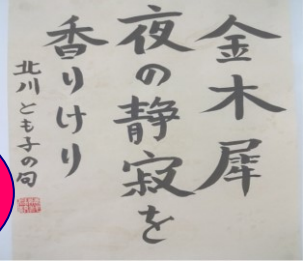 金木犀
夜の静寂を
香りけり
北川とも子の句